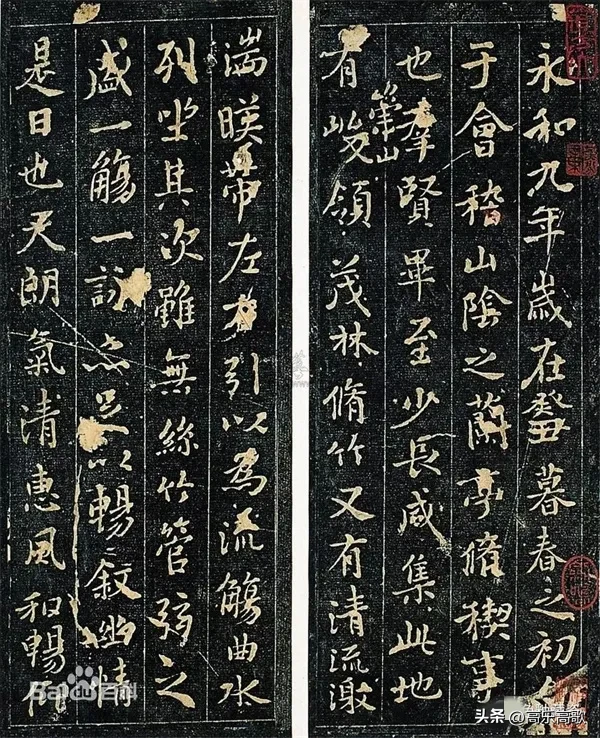 永和九年歲在癸丑暮春之初
于會稽山陰之蘭亭脩稧事
也羣賢畢至少長咸集此地
有崇山峻領茂林脩竹又有清流激
湍暎帶左右引以為流觴曲水
列坐其次雖無絲竹管弦之
盛一觴一詠亦足以暢叙幽情
是日也天朗氣清惠風和暢仰
Bai百科
头条 @高乐高歌